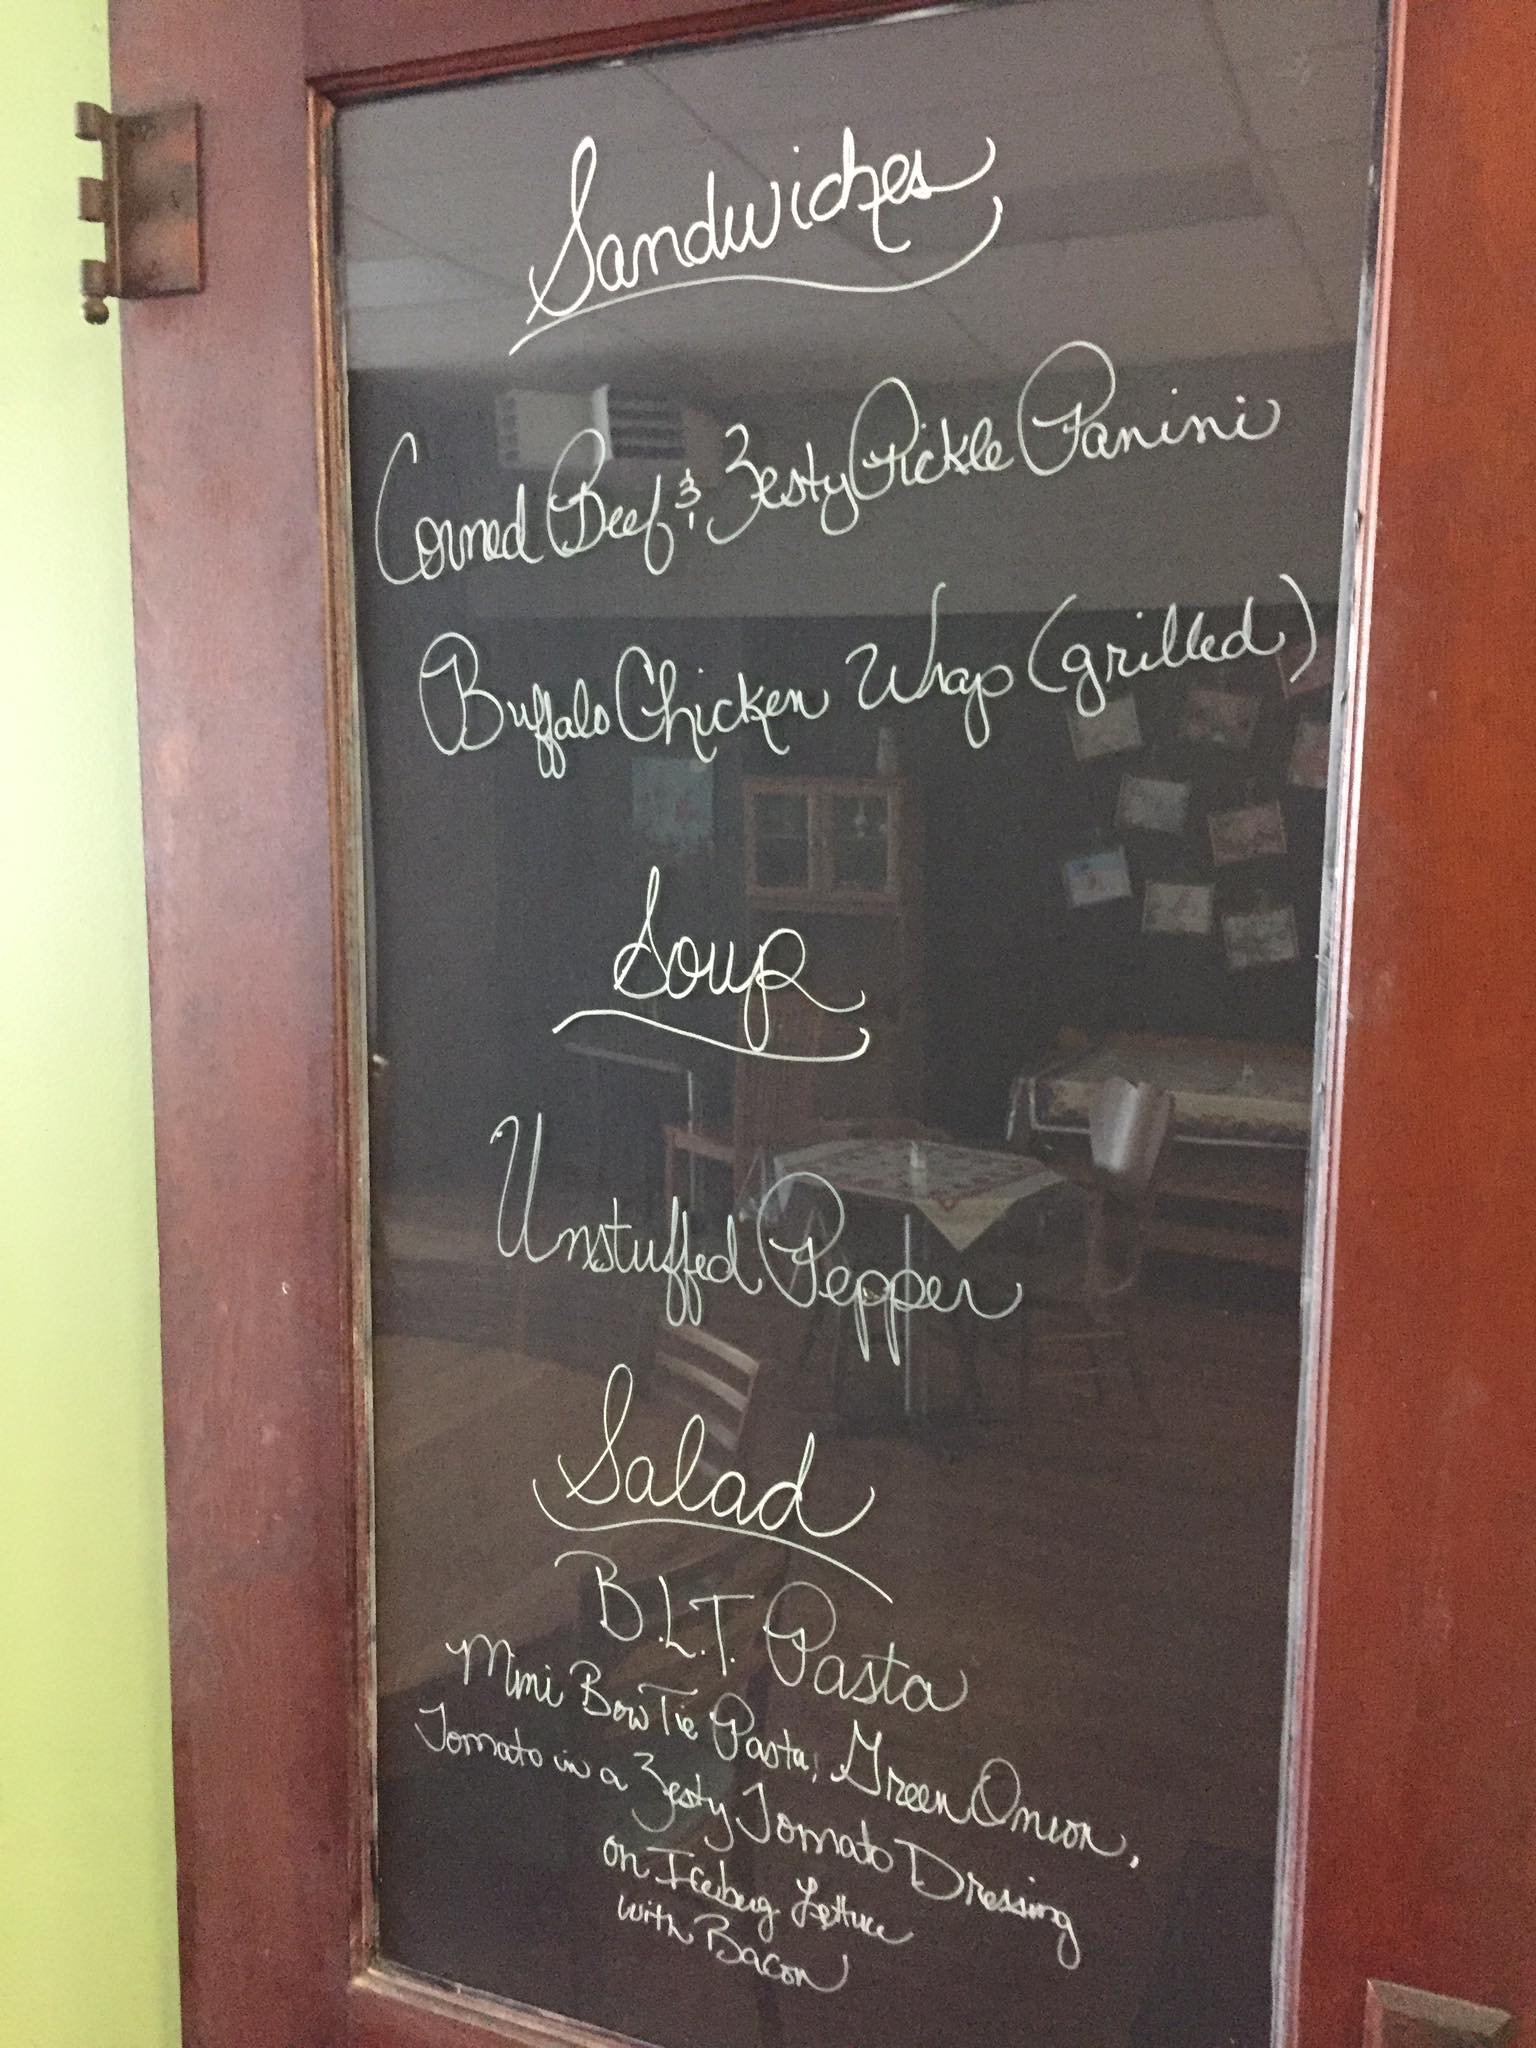 Sandwiches
Corned Beef & Zesty Pickle Panini
Buffalo Chicken Wrap (grilled)
Soup
Unstuffed Pepper
Salad
B.L.T. Pasta
Mini Bow Tie Pasta, Green Onion,
Tomato in a Zesty Tomato Dressing
on Iceberg Lettuce
with Bacon